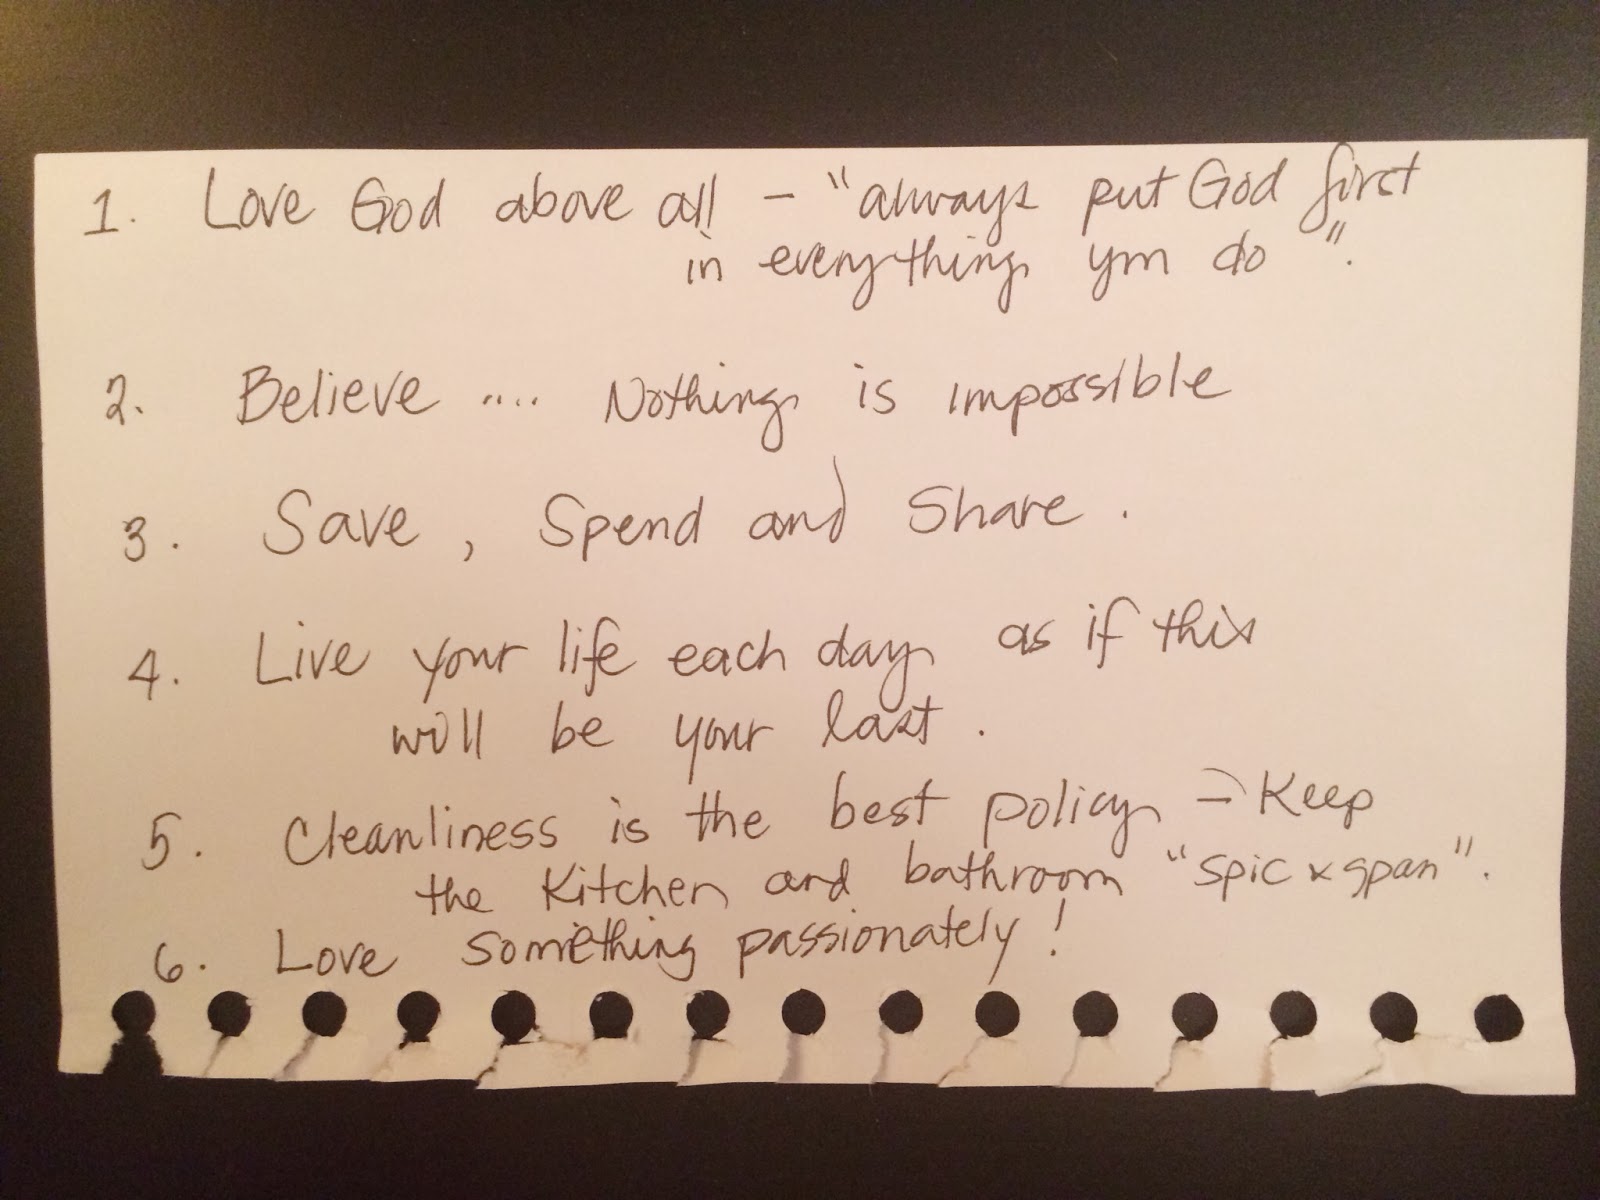 1. Love God above all - "always put God first
in everything you do".
2. Believe .... Nothing is impossible
3. Save, Spend and Share.
4. Live your life each day as if this
will be your last.
5. Cleanliness is the best policy - Keep
the Kitchen and bathroom "spic x span".
6. Love something passionately!